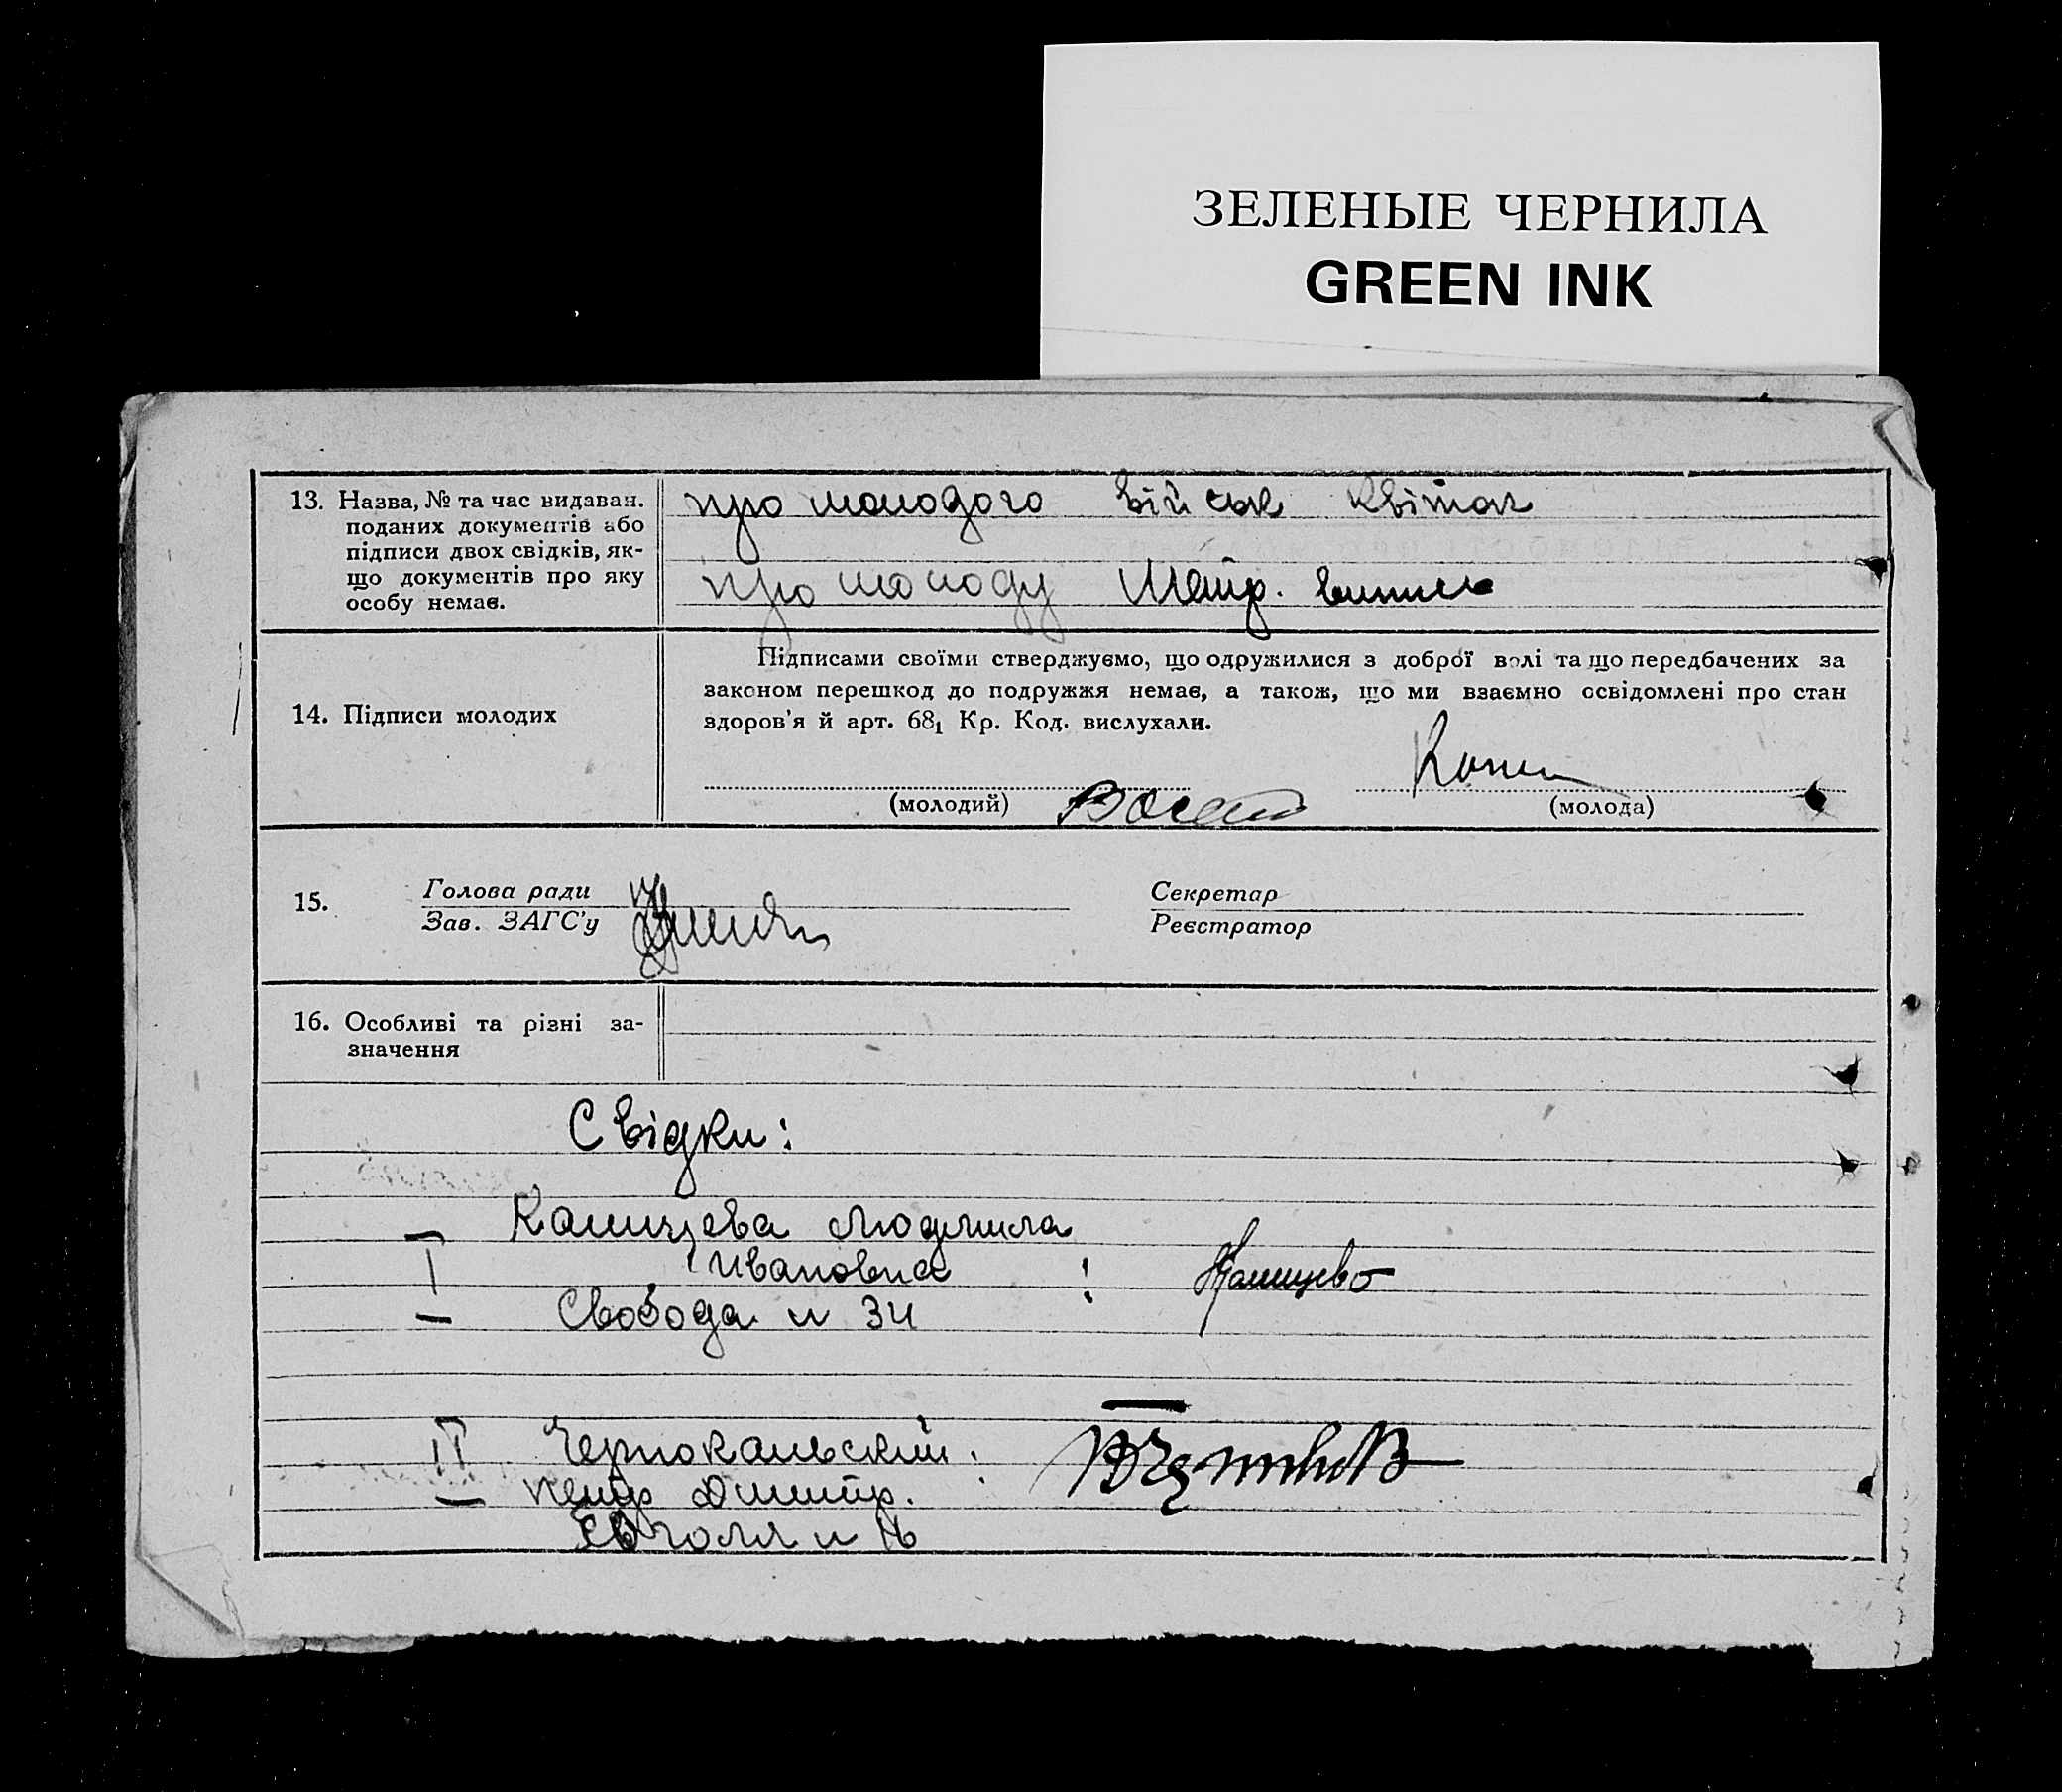 ЗЕЛЕНЫЕ ЧЕРНИЛА
GREEN INK
13. Назва, № та час видаван.
поданих документів або
підписи двох свідків, як-
що документів про яку
особу немає.
про молодого військ квіток
про молоду Метр. випись
14. Підписи молодих
Підписами своїми стверджуємо, що одружилися з доброї волі та що передбачених за
законом перешкод до подружжя немає, а також, що ми взаємно освідомлені про стан
здоров'я й арт. 68₁ Кр. Код. вислухали.
(молодий)
(молода)
15.
Голова ради
Зав. ЗАГС'у
Секретар
Реєстратор
16. Особливі та різні за-
значення
Свідки:
I Камищева Людмила
Ивановна :
Свобода н 34
II Чернокальский :
Петр Дмитр.